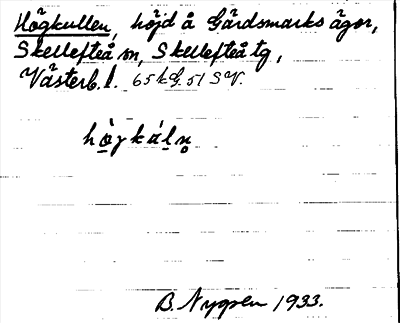 Högkullen, höjd å Gärdsmarks ägor,
Skellefteå sn, Skellefteå tg,
Västerb. l. 65kG. 51 SV.
B. Nygren 1933.